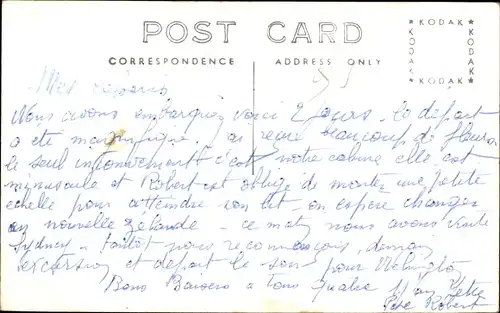 POST CARD
CORRESPONDENCE ADDRESS ONLY
KODAK KODAK KODAK KODAK
Mes
Nous avons embarquez voici 2 jours - le départ
a été magnifique, ai reçue beaucoup de fleurs
le seul inconvenient c'est notre cabine elle est
minuscule et Robert est obligé de monter une petite
echelle pour atteindre son lit - on espere changer
en nouvelle Zélande - ce matin nous avons visite
Sydney - tantot nous recommencons, demain
excursion et depart le soir pour
Bons Baisers a tous quatre
Robert